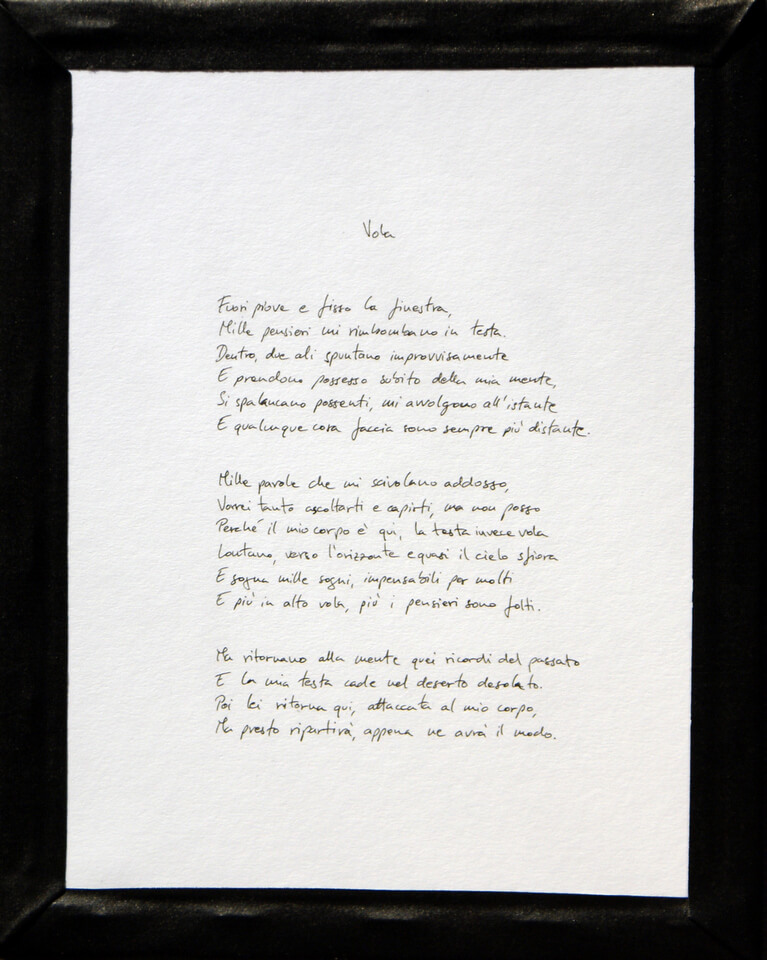 Vola
Fuori piove e fisso la finestra,
Mille pensieri mi rimbombano in testa.
Dentro, due ali spuntano improvvisamente
E prendono possesso subito della mia mente,
Si spalancano possenti, mi avvolgono all'istante
E qualunque cosa faccia sono sempre più distante.
Mille parole che mi scivolano addosso,
Vorrei tanto ascoltarti e capirti, ma non posso
Perché il mio corpo è qui, la testa invece vola
Lontano, verso l'orizzonte e quasi il cielo sfiora
E sogna mille sogni, impensabili per molti
E più in alto vola, più i pensieri sono folti.
Ma ritornano alla mente quei ricordi del passato
E la mia testa cade nel deserto desolato.
Poi lei ritorna qui, attaccata al mio corpo,
Ma presto ripartirà, appena ne avrà il modo.